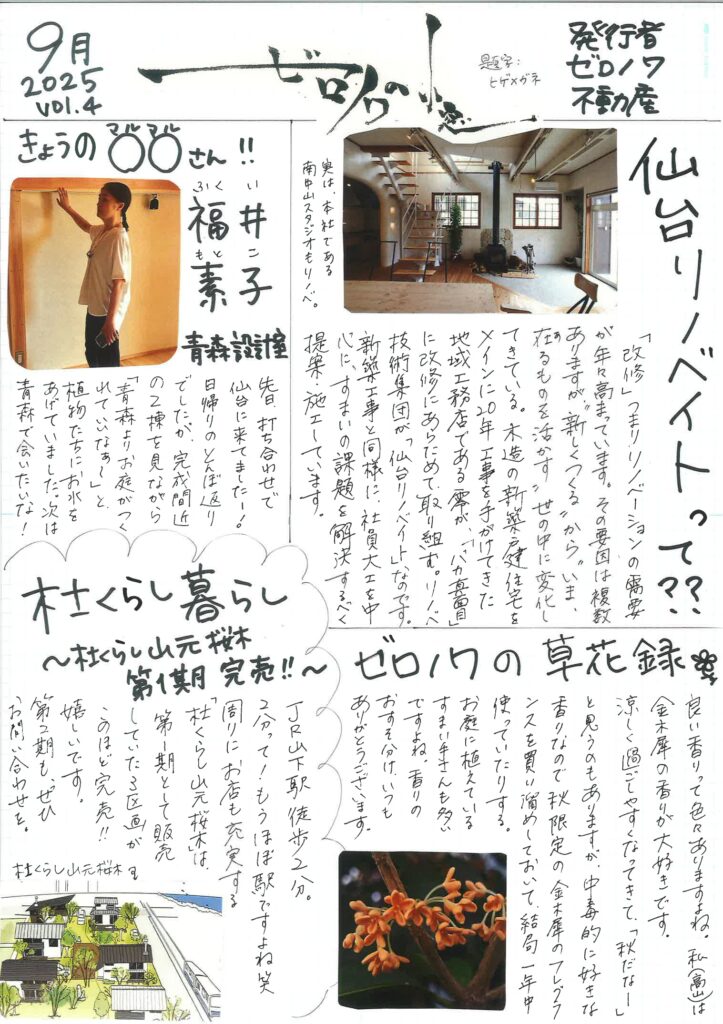 9月
2025
vol.4
ゼロノワの小窓
題字：
ヒゲメガネ
発行者
ゼロノワ
不動産
仙台リノベイトって??
実は、本社である
南中山スタジオもリノベ。
「改修」つまりリノベーションの需要
が年々高まっています。その要因は複数
ありますが“新しくつくる”から“いま、
在るものを活かす”世の中に変化し
てきている。木造の新築戸建住宅を
メインに20年、工事を手がけてきた
地域工務店である零が、「バカ真面目」
に改修にあらためて取り組む。リノベ
技術集団が「仙台リノベイト」なのです。
新築工事と同様に、社員大工を中
心に、すまいの課題を解決するべく
提案・施工しています。
きょうの〇〇さん!!
マルマル
福井
ふくい
素子
もとこ
青森設計室
先日、打ち合わせで
仙台に来てましたー!!
日帰りのとんぼ返り
でしたが、完成間近
の2棟を見ながら
「青森よりお庭がつく
れていいなぁ〜」と、
植物たちにお水を
あげていました。次は
青森で会いたいな!
杜くらし暮らし
〜杜くらし山元桜木
第1期 完売!!〜
JR山下駅徒歩2分。
2分って!もうほぼ駅ですよね笑
周りにお店も充実する
「杜くらし山元桜木」は、
第一期として販売
していた3区画が
このほど完売!!
嬉しいです。
第2期も、ぜひ
お問い合わせを。
杜くらし山元桜木
ゼロノワの草花録
良い香りって色々ありますよね。私(高山)は
金木犀の香りが大好きです。
涼しく過ごしやすくなってきて、「秋だなー」
と思うのもありますが、中毒的に好きな
香りなので秋限定の金木犀のフレグラ
ンスを買い溜めしておいて、結局一年中
使っていたりする。
お庭に植えている
すまい手さんも多い
ですよね。香りの
おすそ分け、いつも
ありがとうございます。